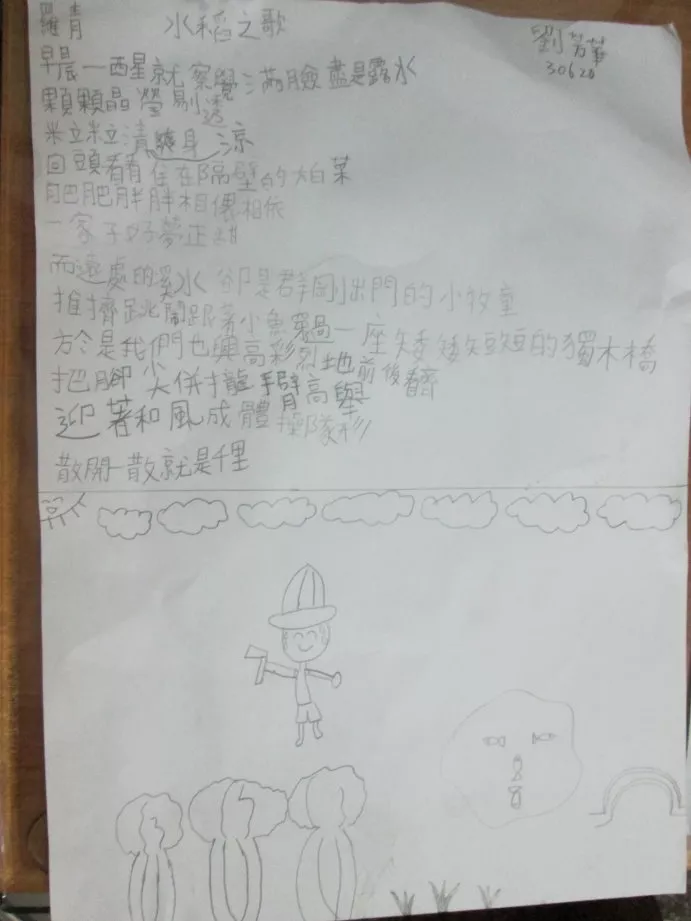 羅青 水稻之歌 劉芳華
30620
早晨一酉星就察覺滿臉盡是露水
顆顆晶瑩剔透
粒粒清爽身涼
回頭看看住在隔壁的大白菜
肥肥胖胖相偎相依
一家子好夢正甜
而遠處的溪水卻是群剛出門的小牧童
推擠跳鬧跟著小魚穿過一座矮矮短短的獨木橋
於是我們也興高彩烈地前後看齊
把腳尖併攏手臂高舉
迎著和風成體操隊形
散開一散就是千里